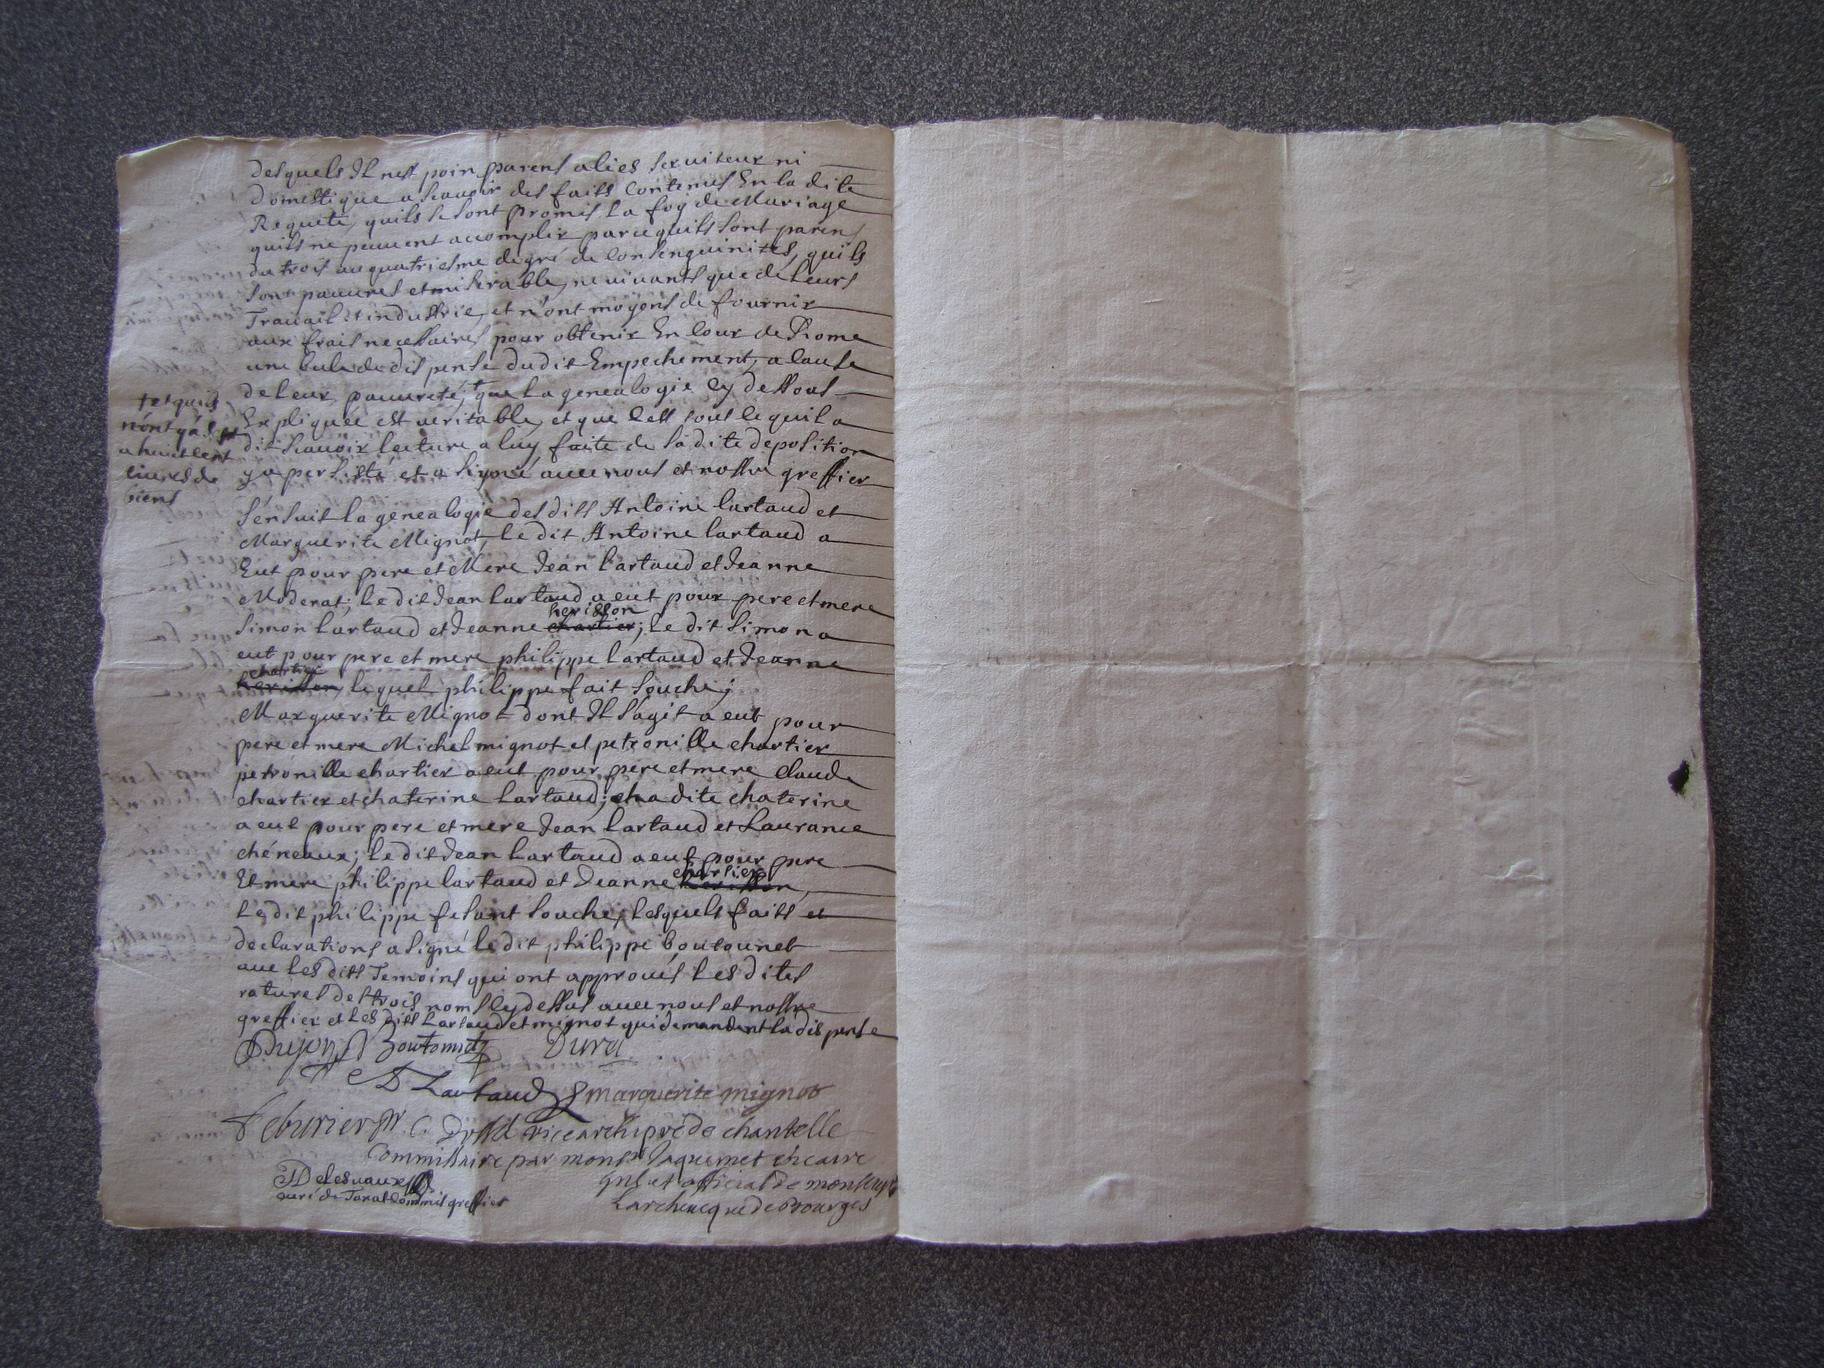 desquels Il nest poin parens alies serviteur ni
domestique a scavoir des faits Contenus En la dite
Requete, quils se sont promis La foy de Mariage
quils ne peuvent accomplir parce quils sont parens
du trois au quatriesme degré de Consenguinités, quils
sont pauvres et miserable, ne vivants que de Leurs
Travail et industrie, et n'ont moyens de fournir
aux frais necessaires pour obtenir En Cour de Rome
une bule de dispense du dit Empechement, a Cause
de Leur pauvreté, que La genealogie Cy dessous
Expliquée est veritable, et que C'est tout ce quil a
dit scavoir lecture a luy faite de sa dite deposition
y a persisté et a signé avec nous et nostre greffier
+ et quils
nont pas
a huit cent
livres de
biens
s'ensuit La genealogie des dits Antoine Cartaud et
Marguerite Mignot, Le dit Antoine Cartaud a
Eut pour pere et Mere Jean Cartaud et Jeanne
Moderat; Le dit Jean Cartaud a eut pour pere et mere
herisson
Simon Cartaud et Jeanne chartier; Le dit Simon a
eut pour pere et mere philippe Cartaud et Jeanne
chartier
herisson, lequel philippe fait souche;
Marguerite Mignot dont Il s'agit a eut pour
pere et mere Michel mignot et petronille chartier
petronille chartier a eut pour pere et mere Claude
chartier et chaterine Cartaud; La dite chaterine
a eut pour pere et mere Jean Cartaud et Laurance
chéneaux; Le dit Jean Cartaud a eut pour pere
chartier
Et mere philippe Cartaud et Jeanne herisson,
Le dit philippe fesant souche, Lesquels faits et
declarations a signé le dit philippe boutounet
avec Les dits Temoins qui ont approuvés Les dites
ratures des trois noms Cy dessus avec nous et nostre
greffier et Les dits Cartaud et mignot qui demandent la dispense
Dujon Boutounet Dura
Cartaud marguerite mignot
Feburier vice archipré de chantelle
Commissaire par monsr Jaquemet vicaire
gnl et official de monseigr
Larcheveque de Bourges
Delesvaux
curé de Taxat Commis greffier